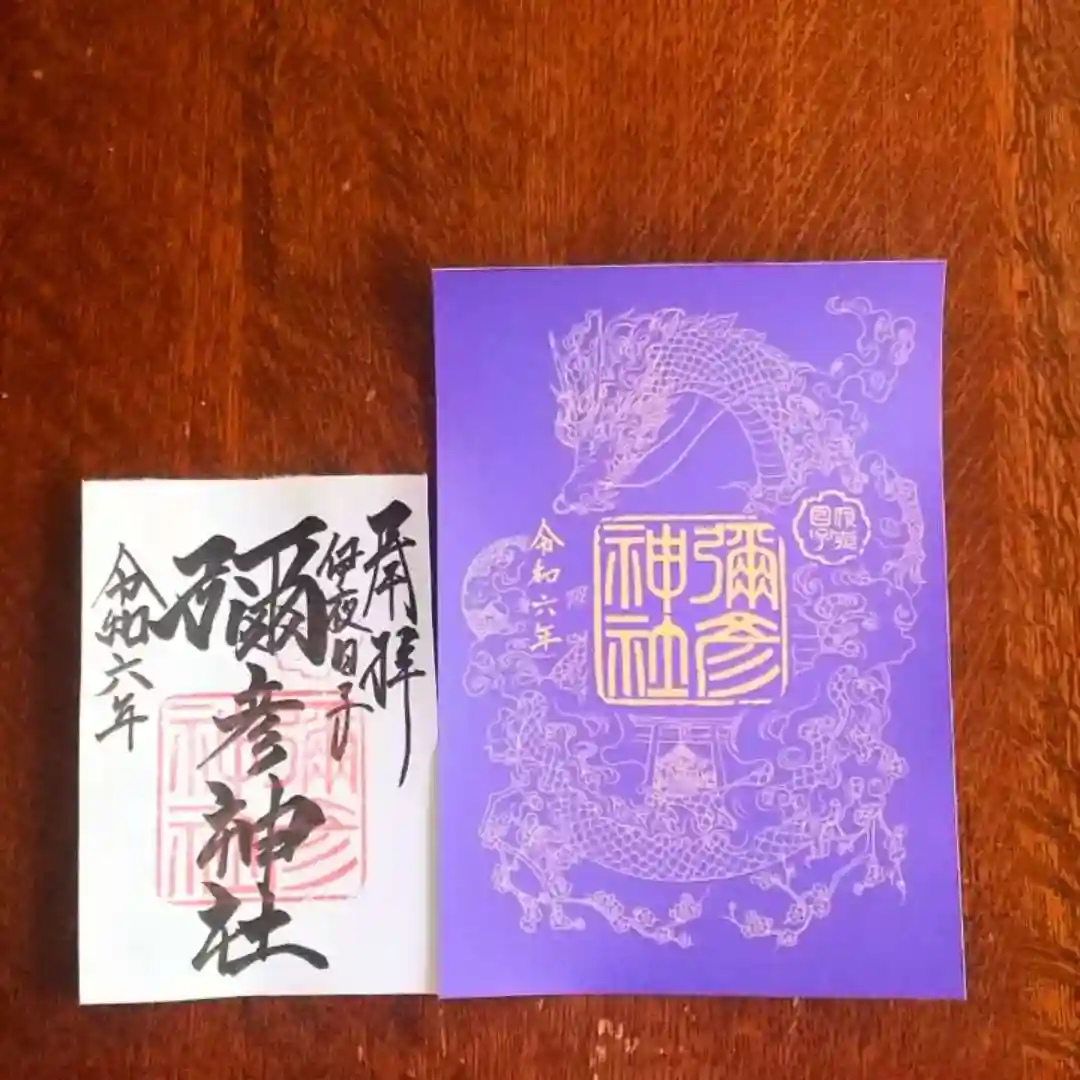 奉拝
伊夜日子
彌彦神社
令和六年
彌彦
神社
伊夜
日子
彌彦
神社
令和六年